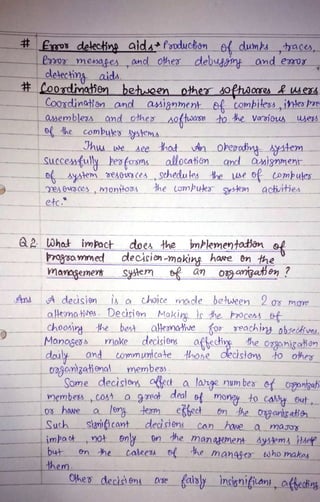 # Error detecting aids → Production of dumps, traces,
Error messages, and other debugging and error
detecting aids.
# Coordination between other softwares & users
Coordination and assignment of compilers, interpre
assemblers and other software to the various users
of the computer systems.
Thus we see that an operating system
successfully performs allocation and assignment
of system resources, schedules the use of computer
resources, monitors the computer system activities
etc."
Q2 What impact does the implementation of
programmed decision-making have on the
management system of an organization?
Ans A decision is a choice made between 2 or more
alternatives. Decision Making is the process of
choosing the best alternative for reaching objectives.
Managers make decisions affecting the organization
daily and communicate those decisions to other
organizational members.
Some decisions affect a large number of organizati
members, cost a great deal of money to carry out,
or have a long term effect on the organization
Such significant decisions can have a major
impact, not only on the management systems itself
but on the career of the manager who makes
them
Other decisions are fairly insignificant, affecting